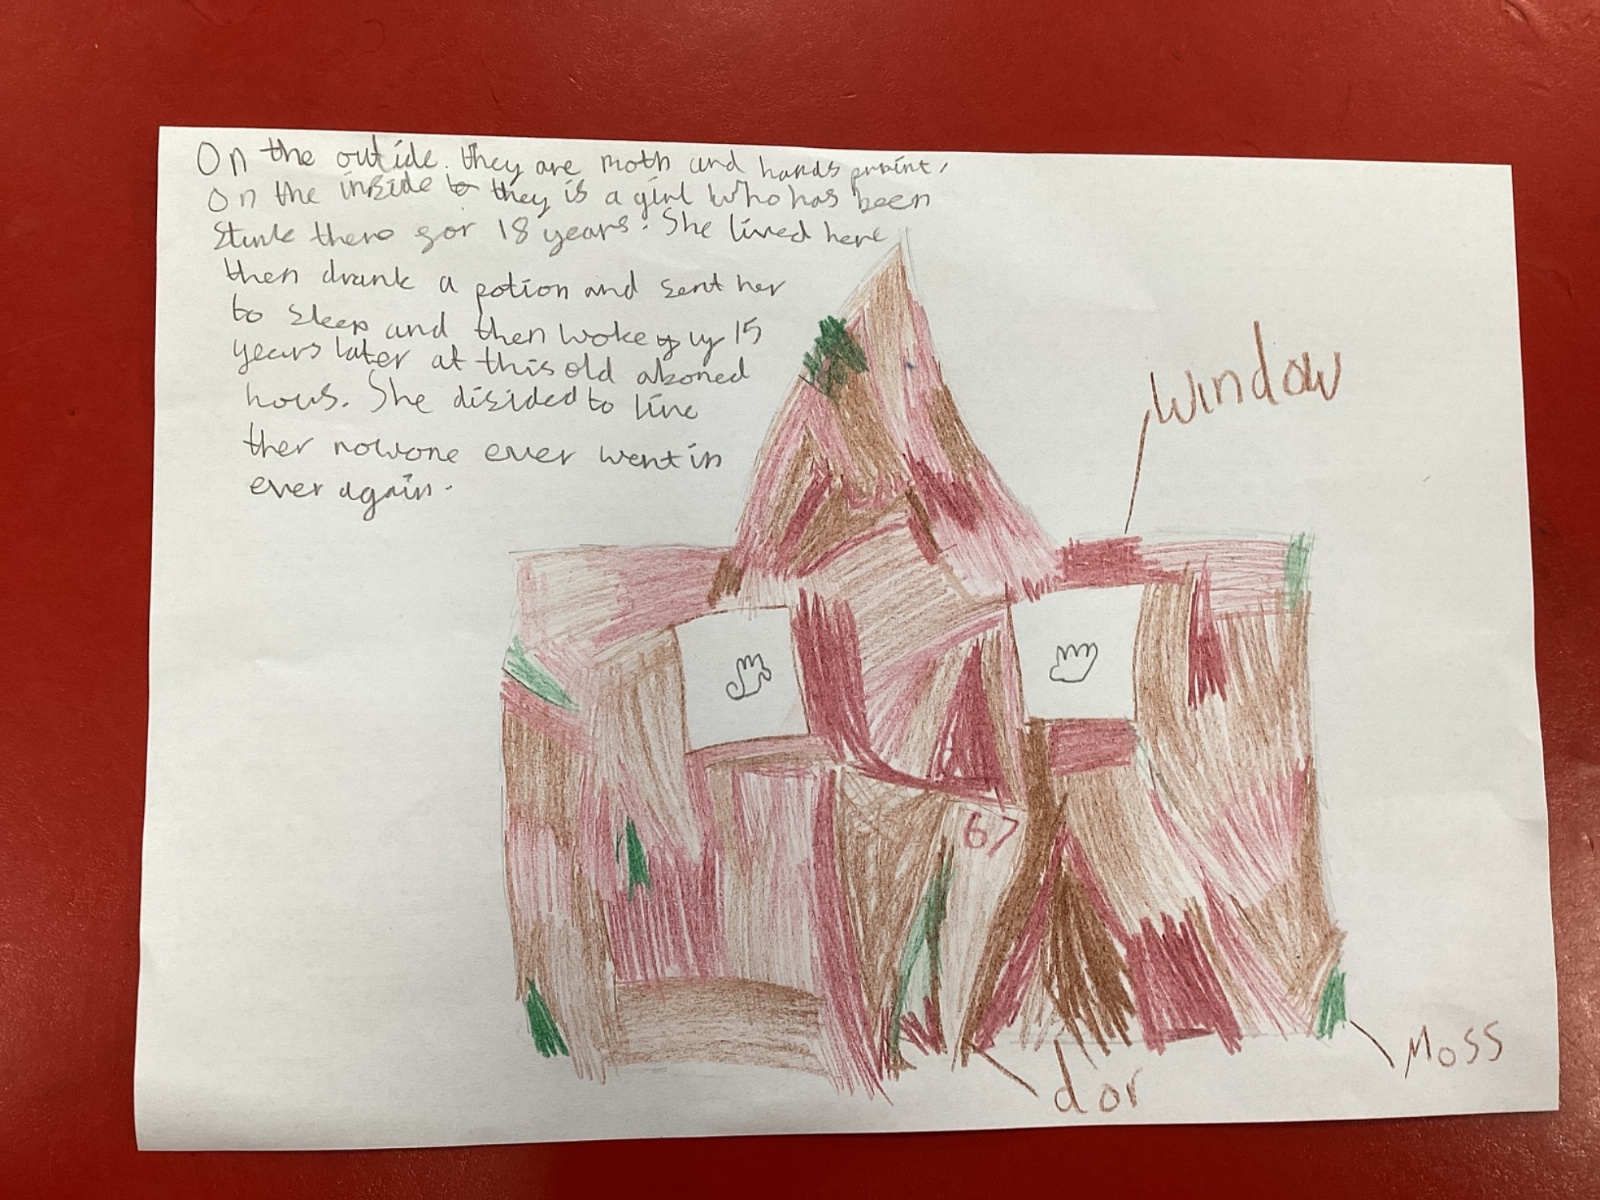 On the outide. they are moth and hands praint,
On the inside to they is a girl who has been
Stuck there for 18 years. She lived here
then drank a potion and sent her
to sleep and then woke up 15
years later at this old aboned
hous. She disided to live
ther nowone ever went in
ever again.
Window
67
dor
Moss